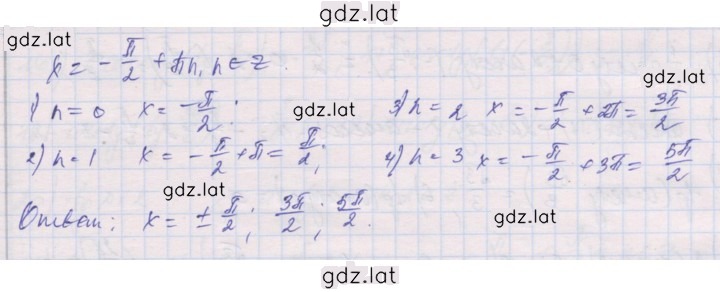 gdz.lat
gdz.lat
x = -π/2 + πn, n ∈ Z.
gdz.lat
1) n = 0 x = -π/2;
3) n = 2 x = -π/2 + 2π = 3π/2
gdz.lat
2) n = 1 x = -π/2 + π = π/2;
4) n = 3 x = -π/2 + 3π = 5π/2
gdz.lat
Ответ: x = ± π/2; 3π/2; 5π/2.
gdz.lat
gdz.lat